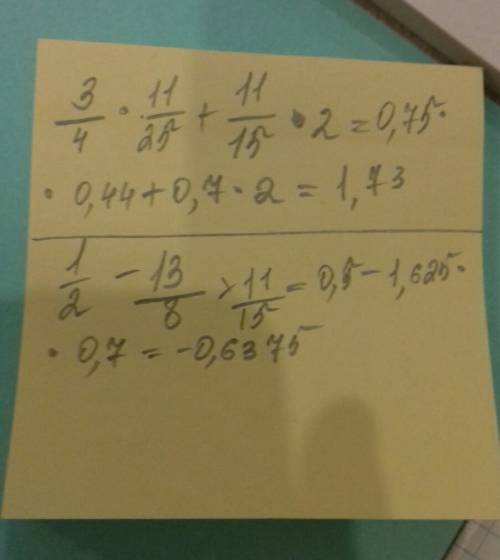 3/4 · 11/25 + 11/15 · 2 = 0,75 ·
· 0,44 + 0,7 · 2 = 1,73
1/2 - 13/8 · 11/15 = 0,5 - 1,625 ·
· 0,7 = -0,6375